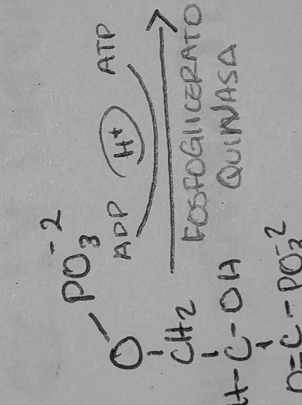 O-PO₃⁻²
CH₂
H-C-OH
O=C-PO₃⁻²
ADP H+ ATP
FOSFOGLICERATO
QUINASA